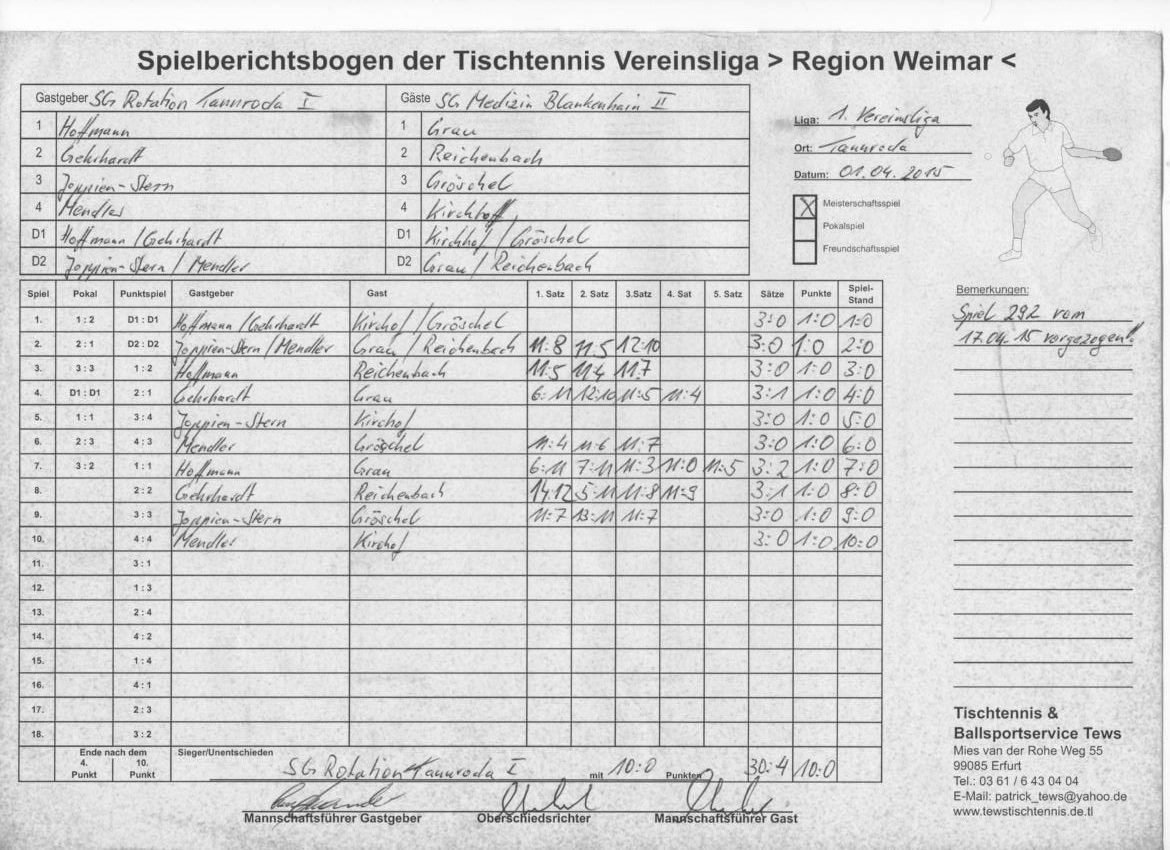 Spielberichtsbogen der Tischtennis Vereinsliga > Region Weimar <
Gastgeber SG Rotation Tannroda I Gäste SG Medizin Blankenhain II
1 Hoffmann 1 Grau
2 Gehrhardt 2 Reichenbach
3 Joppien-Stern 3 Gröschel
4 Mendler 4 Kirchhoff
D1 Hoffmann/Gehrhardt D1 Kirchhof/Gröschel
D2 Joppien-Stern/Mendler D2 Grau/Reichenbach
Liga: 1. Vereinsliga
Ort: Tannroda
Datum: 01.04.2015
X Meisterschaftsspiel
Pokalspiel
Freundschaftsspiel
Spiel Pokal Punktspiel Gastgeber Gast 1. Satz 2. Satz 3.Satz 4. Sat 5. Satz Sätze Punkte Spiel-Stand
1. 1 : 2 D1 : D1 Hoffmann/Gehrhardt Kirchof/Gröschel 3:0 1:0 1:0
2. 2 : 1 D2 : D2 Joppien-Stern/Mendler Grau/Reichenbach 11:8 11:5 12:10 3:0 1:0 2:0
3. 3 : 3 1 : 2 Hoffmann Reichenbach 11:5 11:4 11:7 3:0 1:0 3:0
4. D1 : D1 2 : 1 Gehrhardt Grau 6:11 12:10 11:5 11:4 3:1 1:0 4:0
5. 1 : 1 3 : 4 Joppien-Stern Kirchof 3:0 1:0 5:0
6. 2 : 3 4 : 3 Mendler Gröschel 11:4 11:6 11:7 3:0 1:0 6:0
7. 3 : 2 1 : 1 Hoffmann Grau 6:11 7:11 11:3 11:0 11:5 3:2 1:0 7:0
8. 2 : 2 Gehrhardt Reichenbach 14:12 5:11 11:8 11:9 3:1 1:0 8:0
9. 3 : 3 Joppien-Stern Gröschel 11:7 13:11 11:7 3:0 1:0 9:0
10. 4 : 4 Mendler Kirchof 3:0 1:0 10:0
11. 3 : 1
12. 1 : 3
13. 2 : 4
14. 4 : 2
15. 1 : 4
16. 4 : 1
17. 2 : 3
18. 3 : 2
Ende nach dem
4. Punkt 10. Punkt
Sieger/Unentschieden
SG Rotation Tannroda I mit 10:0 Punkten 30:4 10:0
Mannschaftsführer Gastgeber Oberschiedsrichter Mannschaftsführer Gast
Bemerkungen:
Spiel 292 vom
17.04.15 vorgezogen!
Tischtennis &
Ballsportservice Tews
Mies van der Rohe Weg 55
99085 Erfurt
Tel.: 03 61 / 6 43 04 04
E-Mail: patrick_tews@yahoo.de
www.tewstischtennis.de.tl